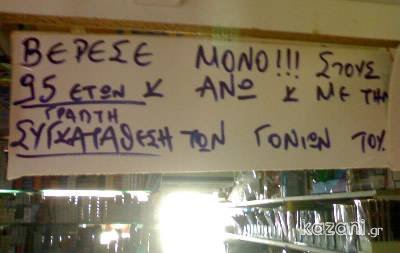 ΒΕΡΕΣΕ ΜΟΝΟ!!! ΣΤΟΥΣ
95 ΕΤΩΝ Κ ΑΝΩ Κ ΜΕ ΤΗΝ
ΓΡΑΠΤΗ
ΣΥΓΚΑΤΑΘΕΣΗ ΤΩΝ ΓΟΝΙΩΝ ΤΟΥ.
kazani.gr